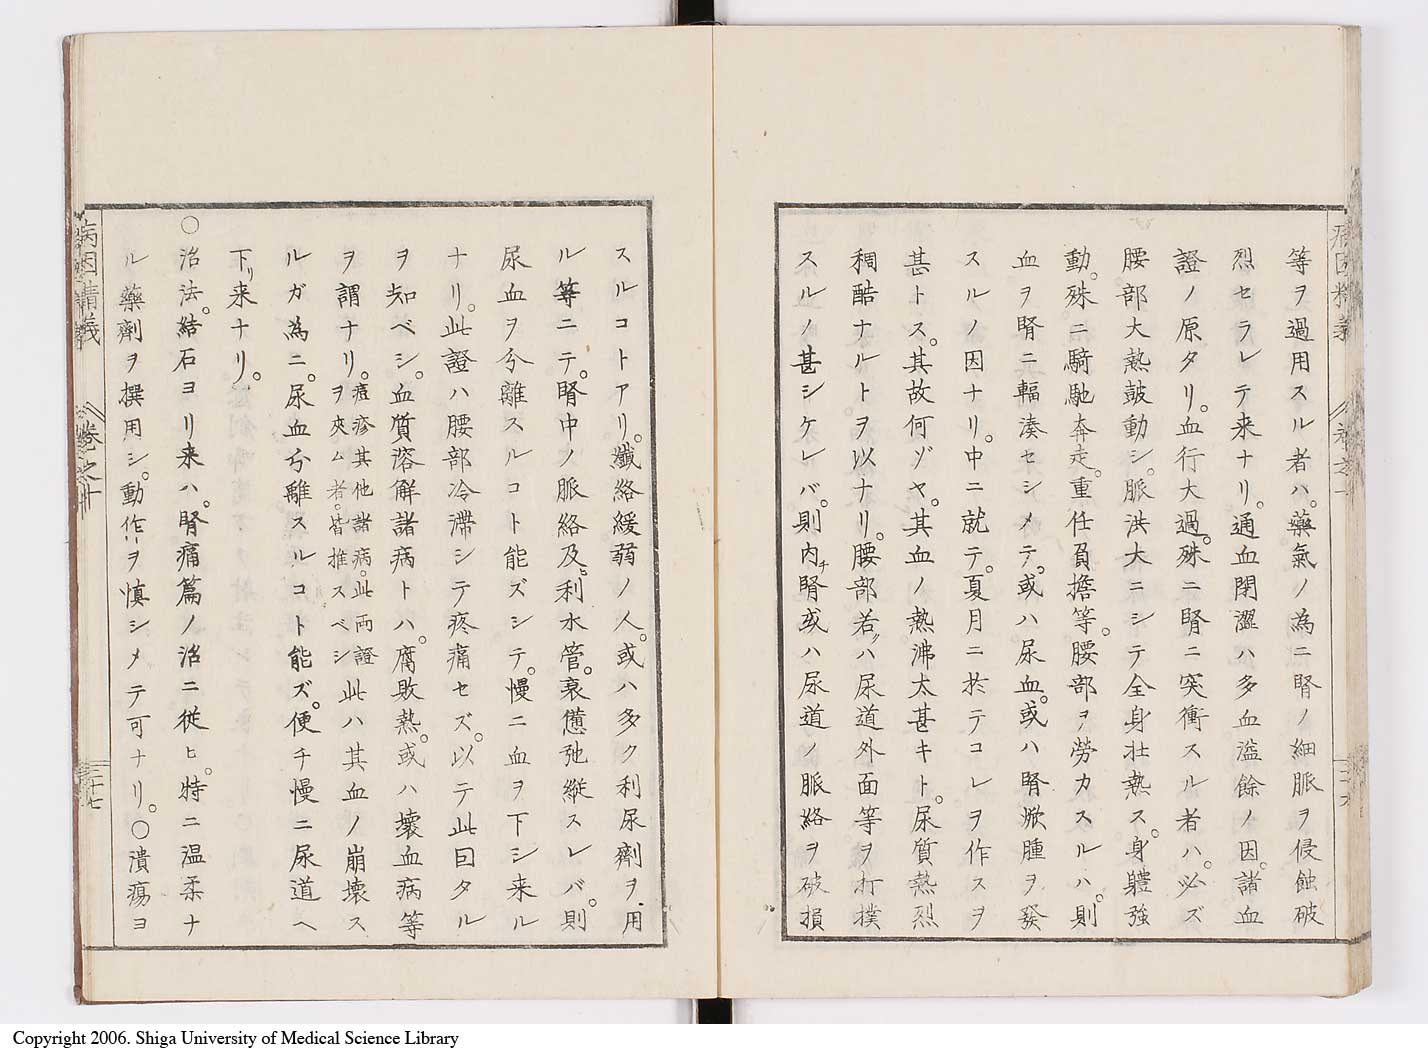 等ヲ過用スル者ハ。藥氣ノ為ニ腎ノ細脈ヲ侵蝕破
烈セラレテ来ナリ。通血閉澀ハ多血溢餘ノ因。諸血
證ノ原タリ。血行大過。殊ニ腎ニ突衝スル者ハ。必ズ
腰部大熱皷動シ。脈洪大ニシテ全身壯熱ス。身軆強
動。殊ニ騎馳奔走。重任負擔等。腰部ヲ勞力スルハ。則
血ヲ腎ニ輻湊セシメテ。或ハ尿血。或ハ腎焮腫ヲ發
スルノ因ナリ。中ニ就テ。夏月ニ於テコレヲ作スヲ
甚トス。其故何ゾヤ。其血ノ熱沸太甚キト。尿質熱烈
稠酷ナルトヲ以ナリ。腰部若クハ尿道外面等ヲ打撲
スルノ甚シケレバ。則内チ腎或ハ尿道ノ脈絡ヲ破損
スルコトアリ。纖絡緩弱ノ人。或ハ多ク利尿劑ヲ用
ル等ニテ。腎中ノ脈絡及ヒ利水管。衰憊弛縱スレバ。則
尿血ヲ分離スルコト能ズシテ。慢ニ血ヲ下シ来ル
ナリ。此證ハ腰部冷滯シテ疼痛セズ。以テ此因タル
ヲ知ベシ。血質溶解諸病トハ。腐敗熱。或ハ壞血病等
ヲ謂ナリ。痘疹其他諸病。此両證ヲ夾ム者。皆推スベシ此ハ其血ノ崩壊ス
ルガ為ニ。尿血分離スルコト能ズ。便チ慢ニ尿道ヘ
下リ来ナリ。
○治法。結石ヨリ来ハ。腎痛篇ノ治ニ從ヒ。特ニ温柔ナ
ル藥劑ヲ撰用シ。動作ヲ慎シメテ可ナリ。○潰瘍ヨ
病因精義 卷之十 二十七